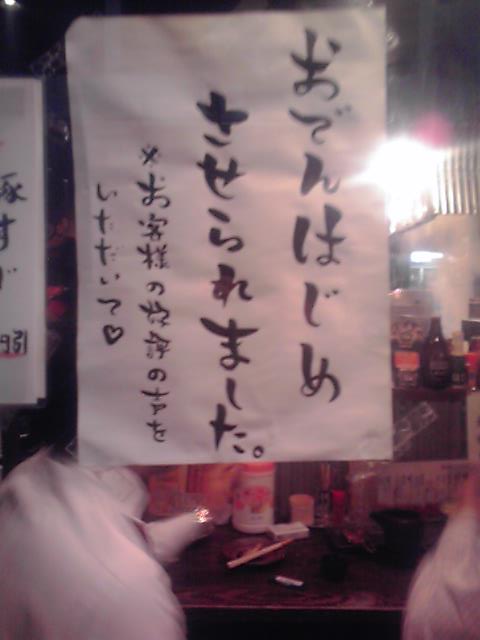 おでんはじめ
させられました。
※お客様の怒涛の声を
いただいて♡
豚すじ
円引